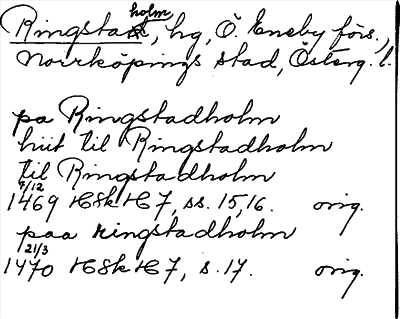 Ringstadholm, hg, Ö. Eneby förs.,
Norrköpings stad, Österg. l.
pa Ringstadholm
hiit til Ringstadholm
til Ringstadholm
7/12
1469 HSkH 7, ss. 15, 16. orig.
paa ringstadholm
21/3
1470 HSkH 7, s. 17. orig.